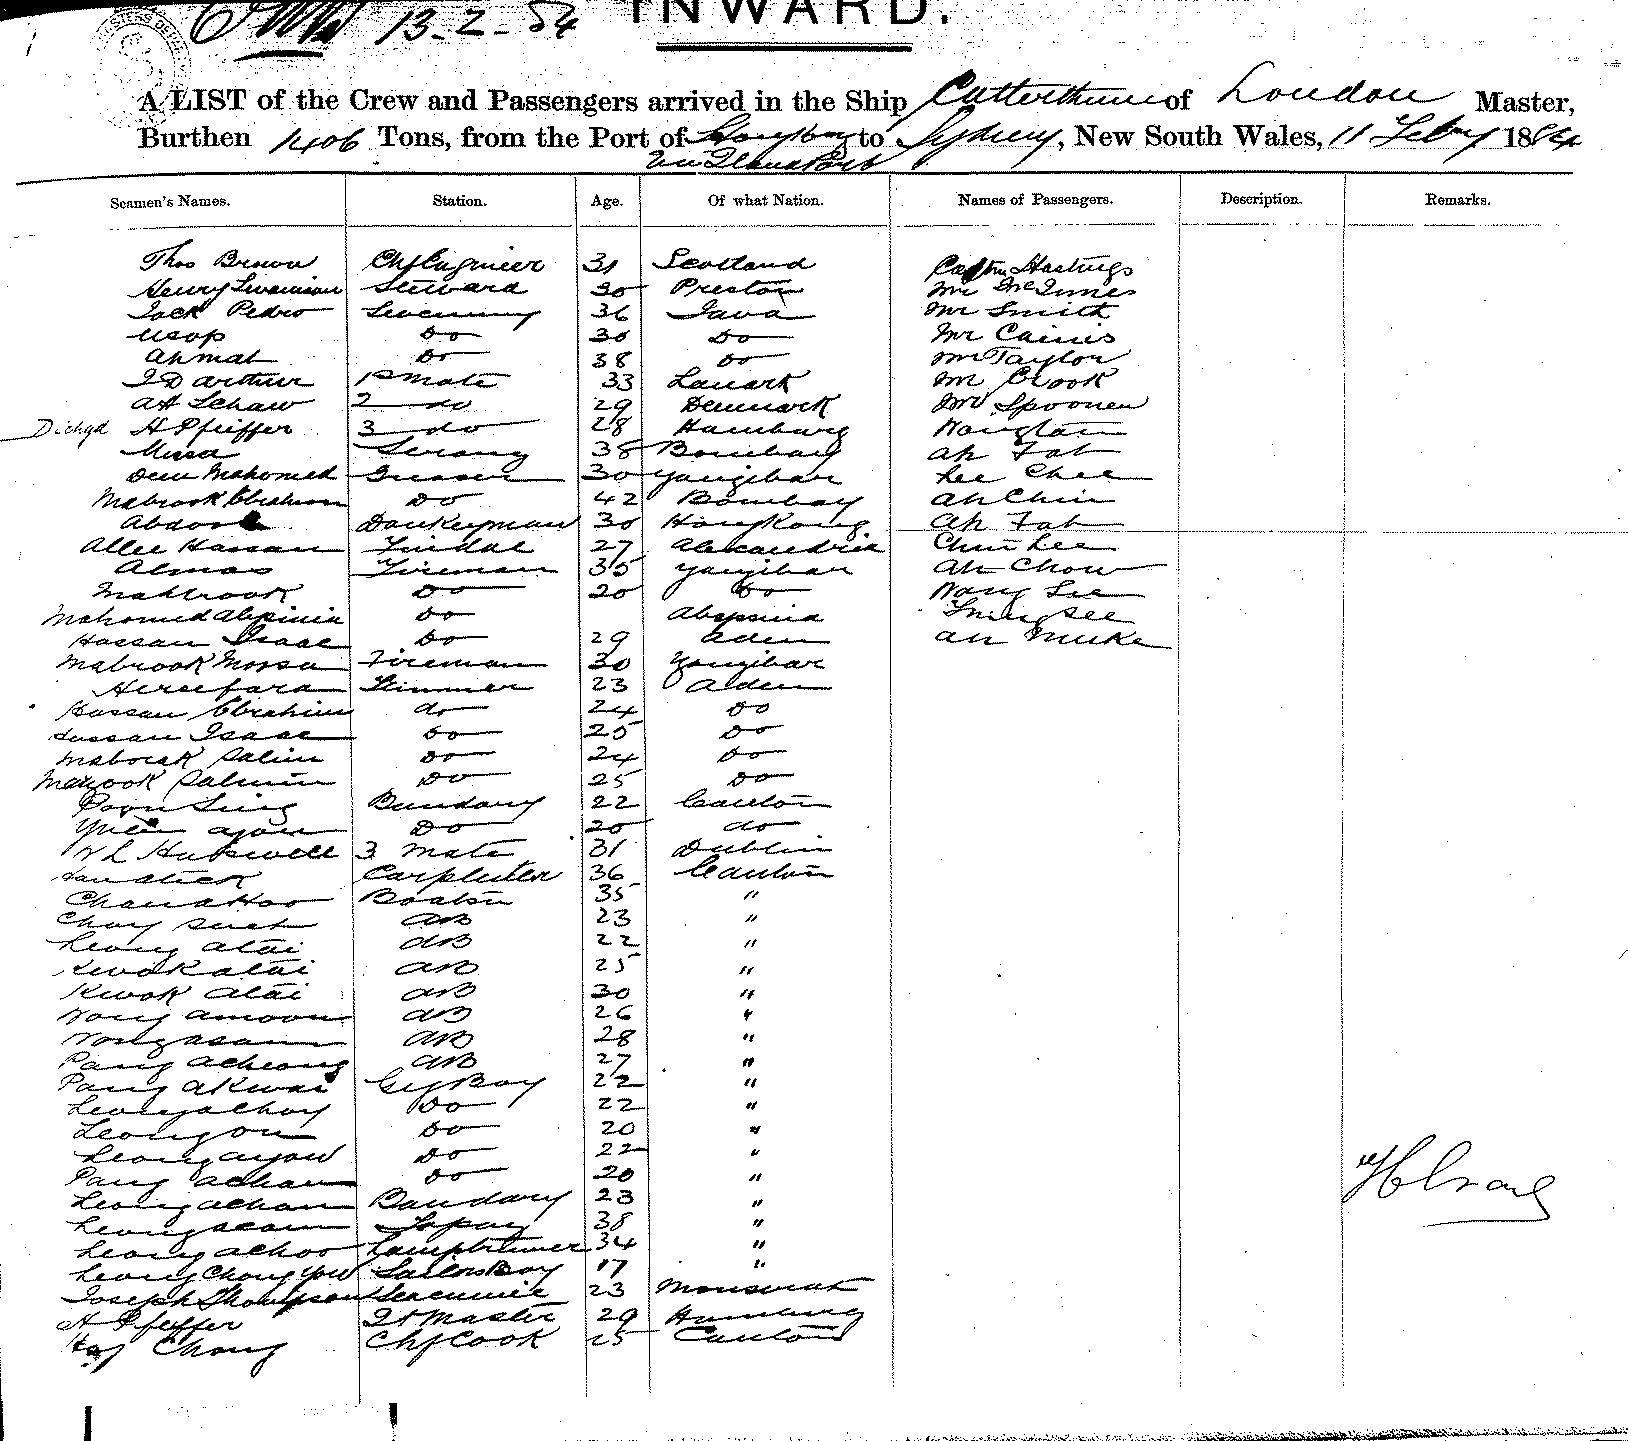 13-2-84 INWARD.
A LIST of the Crew and Passengers arrived in the Ship Catterthun of London Master,
Burthen 1406 Tons, from the Port of Hongkong to Sydney, New South Wales, 11 Feby 1884
Seamen's Names. Station. Age. Of what Nation. Names of Passengers. Description. Remarks.
Thos Brown Chf Engineer 31 Scotland Captn Hastings
Henry Swainson Steward 30 Preston Mr McInnes
Jack Pedro 36 Java Mr Smith
Usop Do 30 Do Mr Cairns
Ahmat Do 38 Do Mr Taylor
J D Arthur 1st mate 33 Lanark Mr Crook
AH Schaw 2 do 29 Denmark Mr Spooner
Dischgd H Pfeiffer 3 do 28 Hamburg
Serang 38 Bombay Ah Fat
Deen Mahomed 30 Yanzibar Lee Chee
Mabrook Ebrahim Do 42 Bombay Ah Chin
Abdool Donkeyman 30 HongKong Ah Fat
Allee Hassan Tindal 27 Alexandria Chin Lee
Almas Fireman 35 Yanzibar Ah Chow
Mabrook Do 20 Do Wong See
Mahomed Abysinia Do Abysinia
Hassan Isaac Do 29 Aden
Mabrook Moosa Fireman 30 Yanzibar
Trimmer 23 Aden
Hassan Ebrahim do 24 Do
Hassan Isaac Do 25 Do
Mabrook Salim Do 24 Do
Salmin Do 25 Do
Poon Sing Bundary 22 Canton
Do 20 do
3 Mate 31 Dublin
Carpenter 36 Canton
Boatsn 35 "
AB 23 "
Leong Atai AB 22 "
Kwok Atai AB 25 "
Kwok Atai AB 30 "
Wong Amoon AB 26 "
Wong Asam AB 28 "
Pang Acheong AB 27 "
Pang Akwai Boy 22 "
Leong Achoy Do 22 "
Leong On Do 20 "
Leong Ayow Do 22 "
Pang Achan Do 20 "
Leong Achan Bandary 23 "
Leong Asam 38 "
Leong Achoo Lamptrimer 34 "
Leong Chong Yow Sailors Boy 17 "
Joseph Thompson 23 Monserat
A Pfeiffer Qt Master 29 Hamburg
Chong Chf Cook 25 Canton